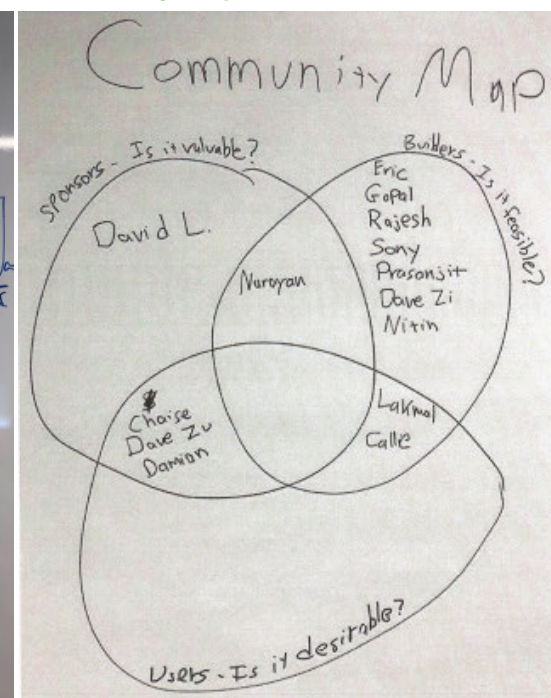 Community Map
Sponsors - Is it valuable?
Builders - Is it feasible?
David L.
Narayan
Eric
Gopal
Rajesh
Sony
Prasanjit
Dave Zi
Nitin
Chaise
Dave Zu
Damian
Lakmal
Calle
Users - Is it desirable?